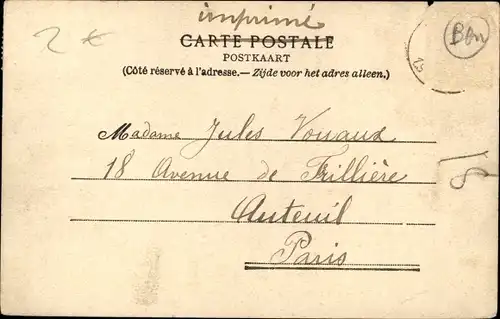 imprimé
2 €
CARTE POSTALE
POSTKAART
(Côté réservé à l'adresse.— Zijde voor het adres alleen.)
Madame Jules Vouaux
18 Avenue de Frillière
Auteuil
Paris